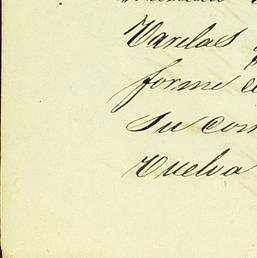 Varelas
forme
su com
Vuelva